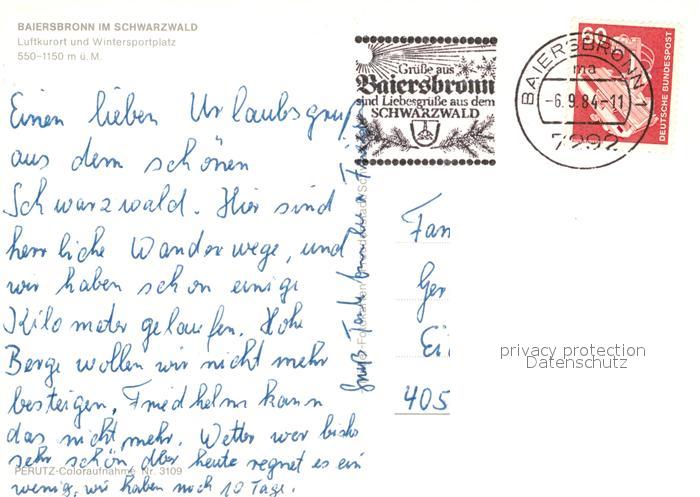 BAIERSBRONN IM SCHWARZWALD
Luftkurort und Wintersportplatz
550-1150 m ü. M.
Grüße aus
Baiersbronn
sind Liebesgrüße aus dem
SCHWARZWALD
BAIERSBRONN 1
ma
-6.9.84-11
7292
60
DEUTSCHE BUNDESPOST
Einen lieben Urlaubsgruß
aus dem schönen
Schwarzwald. Hier sind
herrliche Wanderwege, und
wir haben schon einige
Kilometer gelaufen. Hohe
Berge wollen wir nicht mehr
besteigen, Friedhelm kann
das nicht mehr. Wetter war bisher
sehr schön, aber heute regnet es ein
wenig, wir haben noch 10 Tage.
Gruß
Fam
Ger
Ei
405
privacy protection
Datenschutz
PERUTZ-Coloraufnahme Nr. 3109